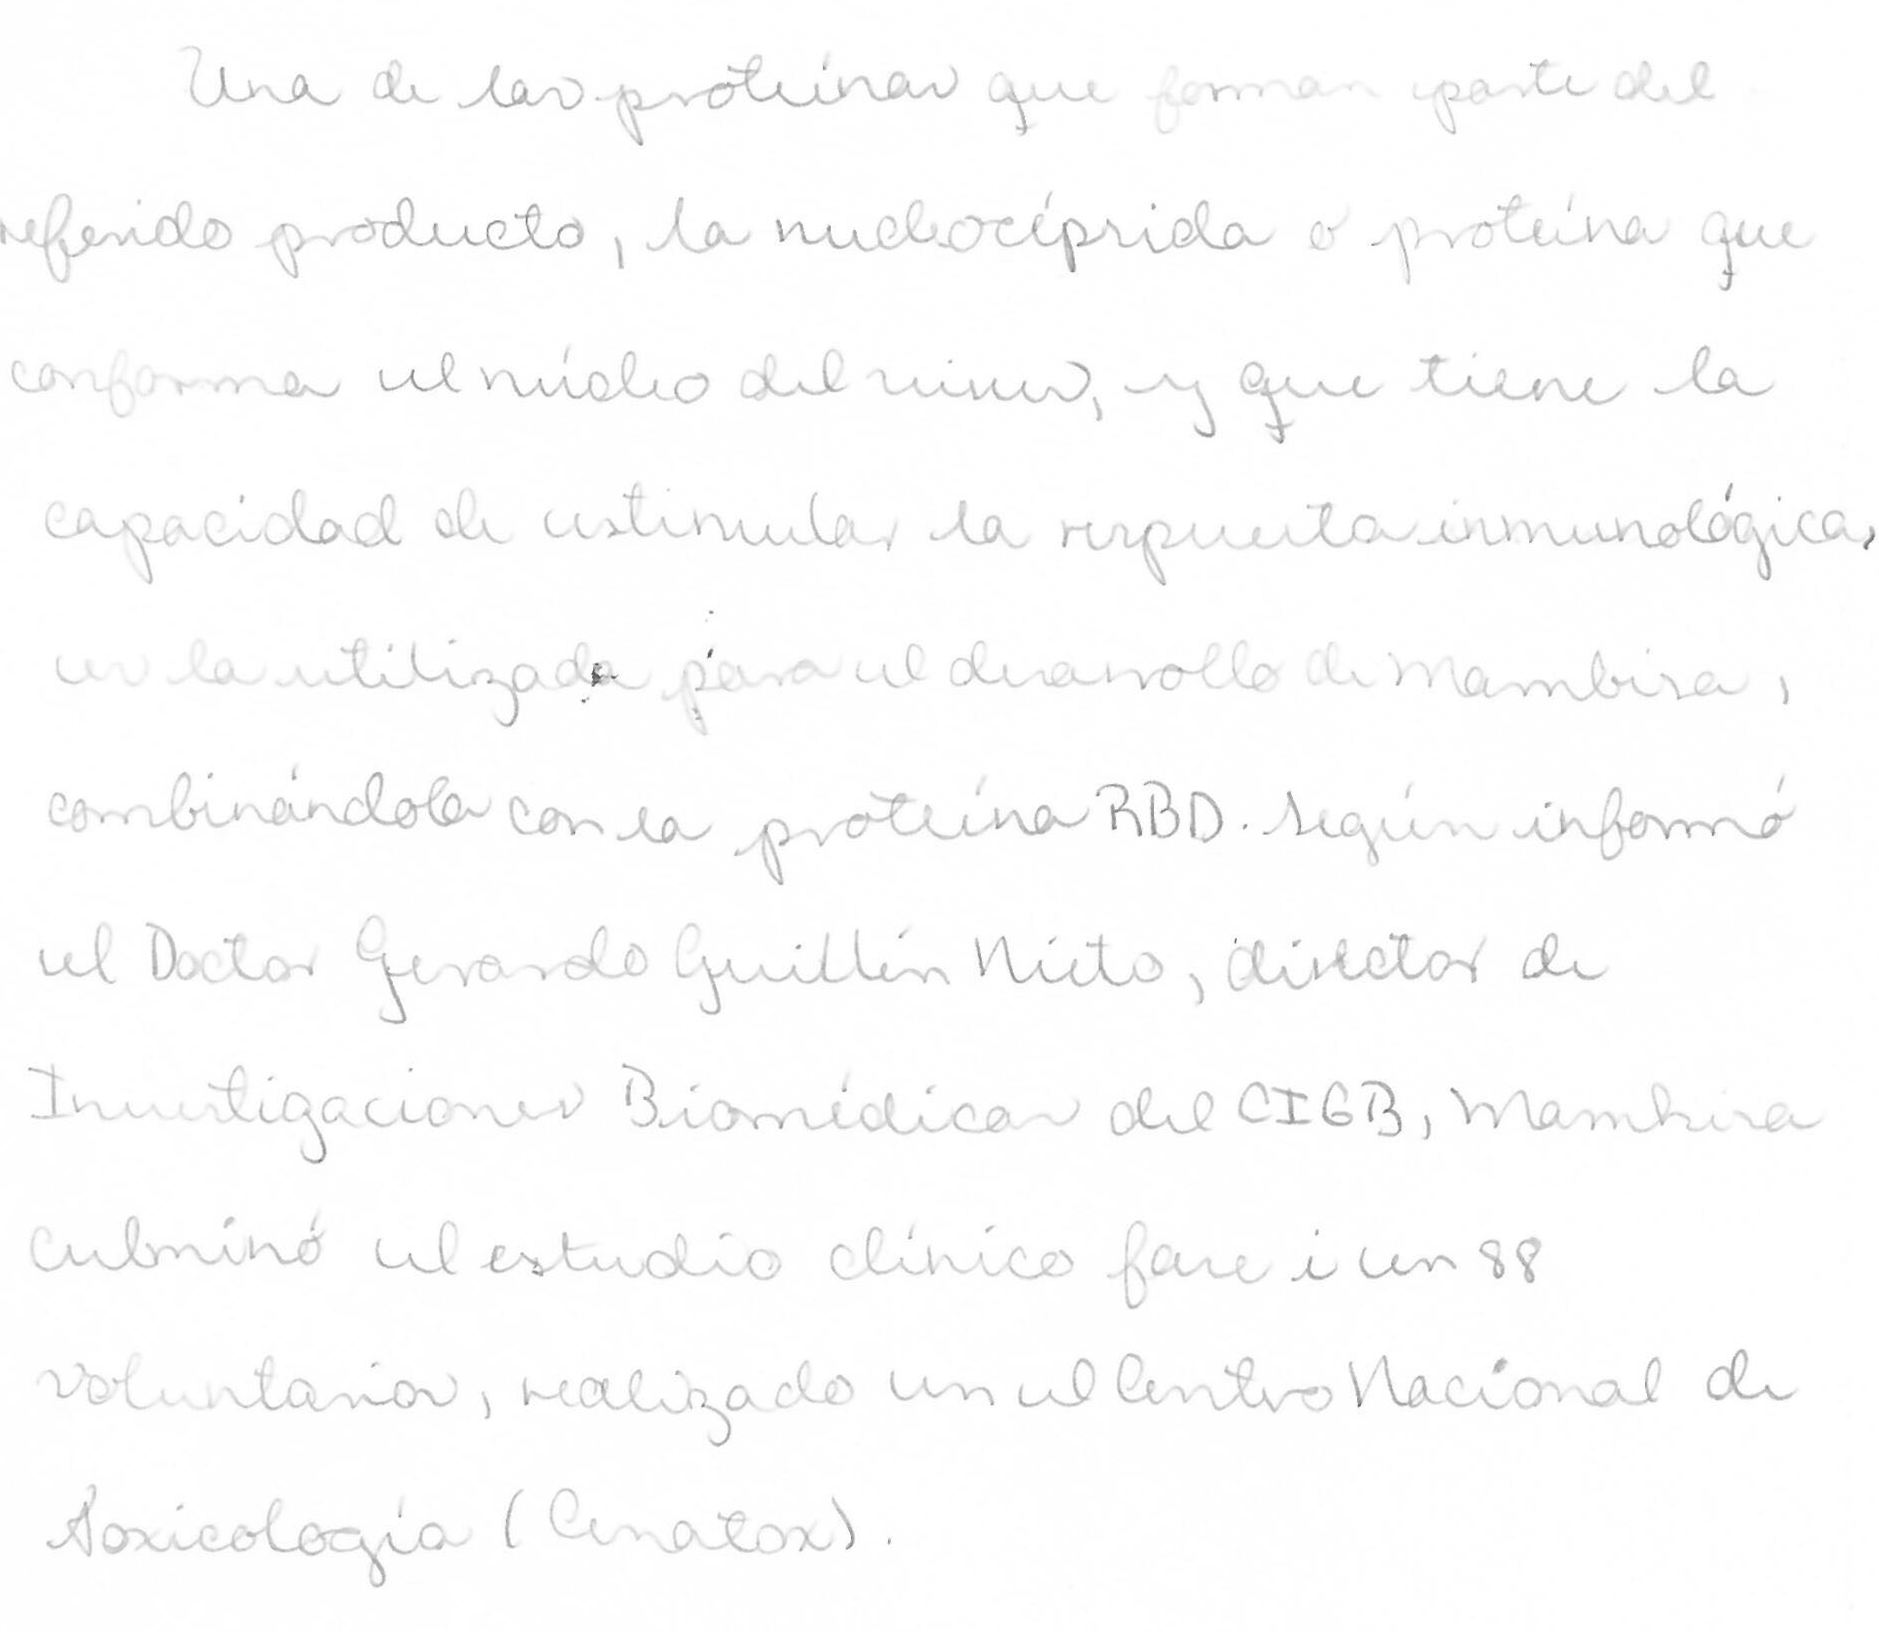 Una de las proteínas que forman parte del
referido producto, la nucleocáprida o proteína que
conforma el núcleo del virus, y que tiene la
capacidad de estimular la respuesta inmunológica,
es la utilizada para el desarrollo de Mambisa,
combinándola con la proteína RBD. Según informó
el Doctor Gerardo Guillén Nieto, director de
Investigaciones Biomédicas del CIGB, Mambisa
culminó el estudio clínico fase i en 88
voluntarios, realizado en el Centro Nacional de
Toxicología (Cenatox).